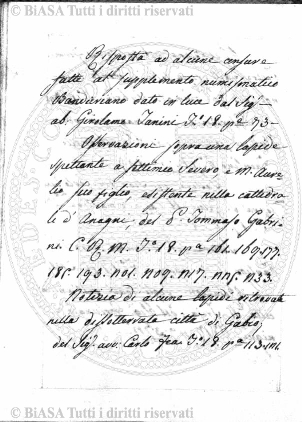 © BiASA Tutti i diritti riservati
Risposta ad alcune censure
fatte al supplemento numismatico
Banduriano dato in luce dal Sig.
ab. Girolamo Tanini T. 18. pª 73.
Osservazioni sopra una lapide
spettante a Settimio Severo, e M. Aure
lio suo figlio, esistente nella cattedra
le d'Anagni, del P. Tommaso Gabri
ni. C. R. M. T. 18. pª 161. 169. 177.
185. 193. 201. 209. 217. 225. 233.
Notizia di alcune lapidi ritrovate
nella dissotterrata città di Gabio,
del Sig. avv. Carlo Fea T. 18. pª 113. 121.
© BiASA Tutti i diritti riservati